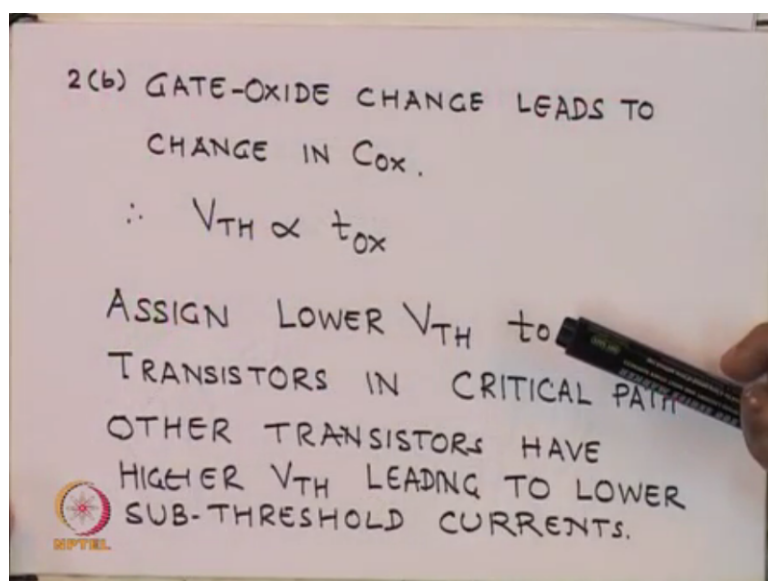 2(b) GATE-OXIDE CHANGE LEADS TO
CHANGE IN COX.
∴ VTH ∝ tOX
ASSIGN LOWER VTH to
TRANSISTORS IN CRITICAL PATH
OTHER TRANSISTORS HAVE
HIGHER VTH LEADING TO LOWER
SUB-THRESHOLD CURRENTS.
NPTEL